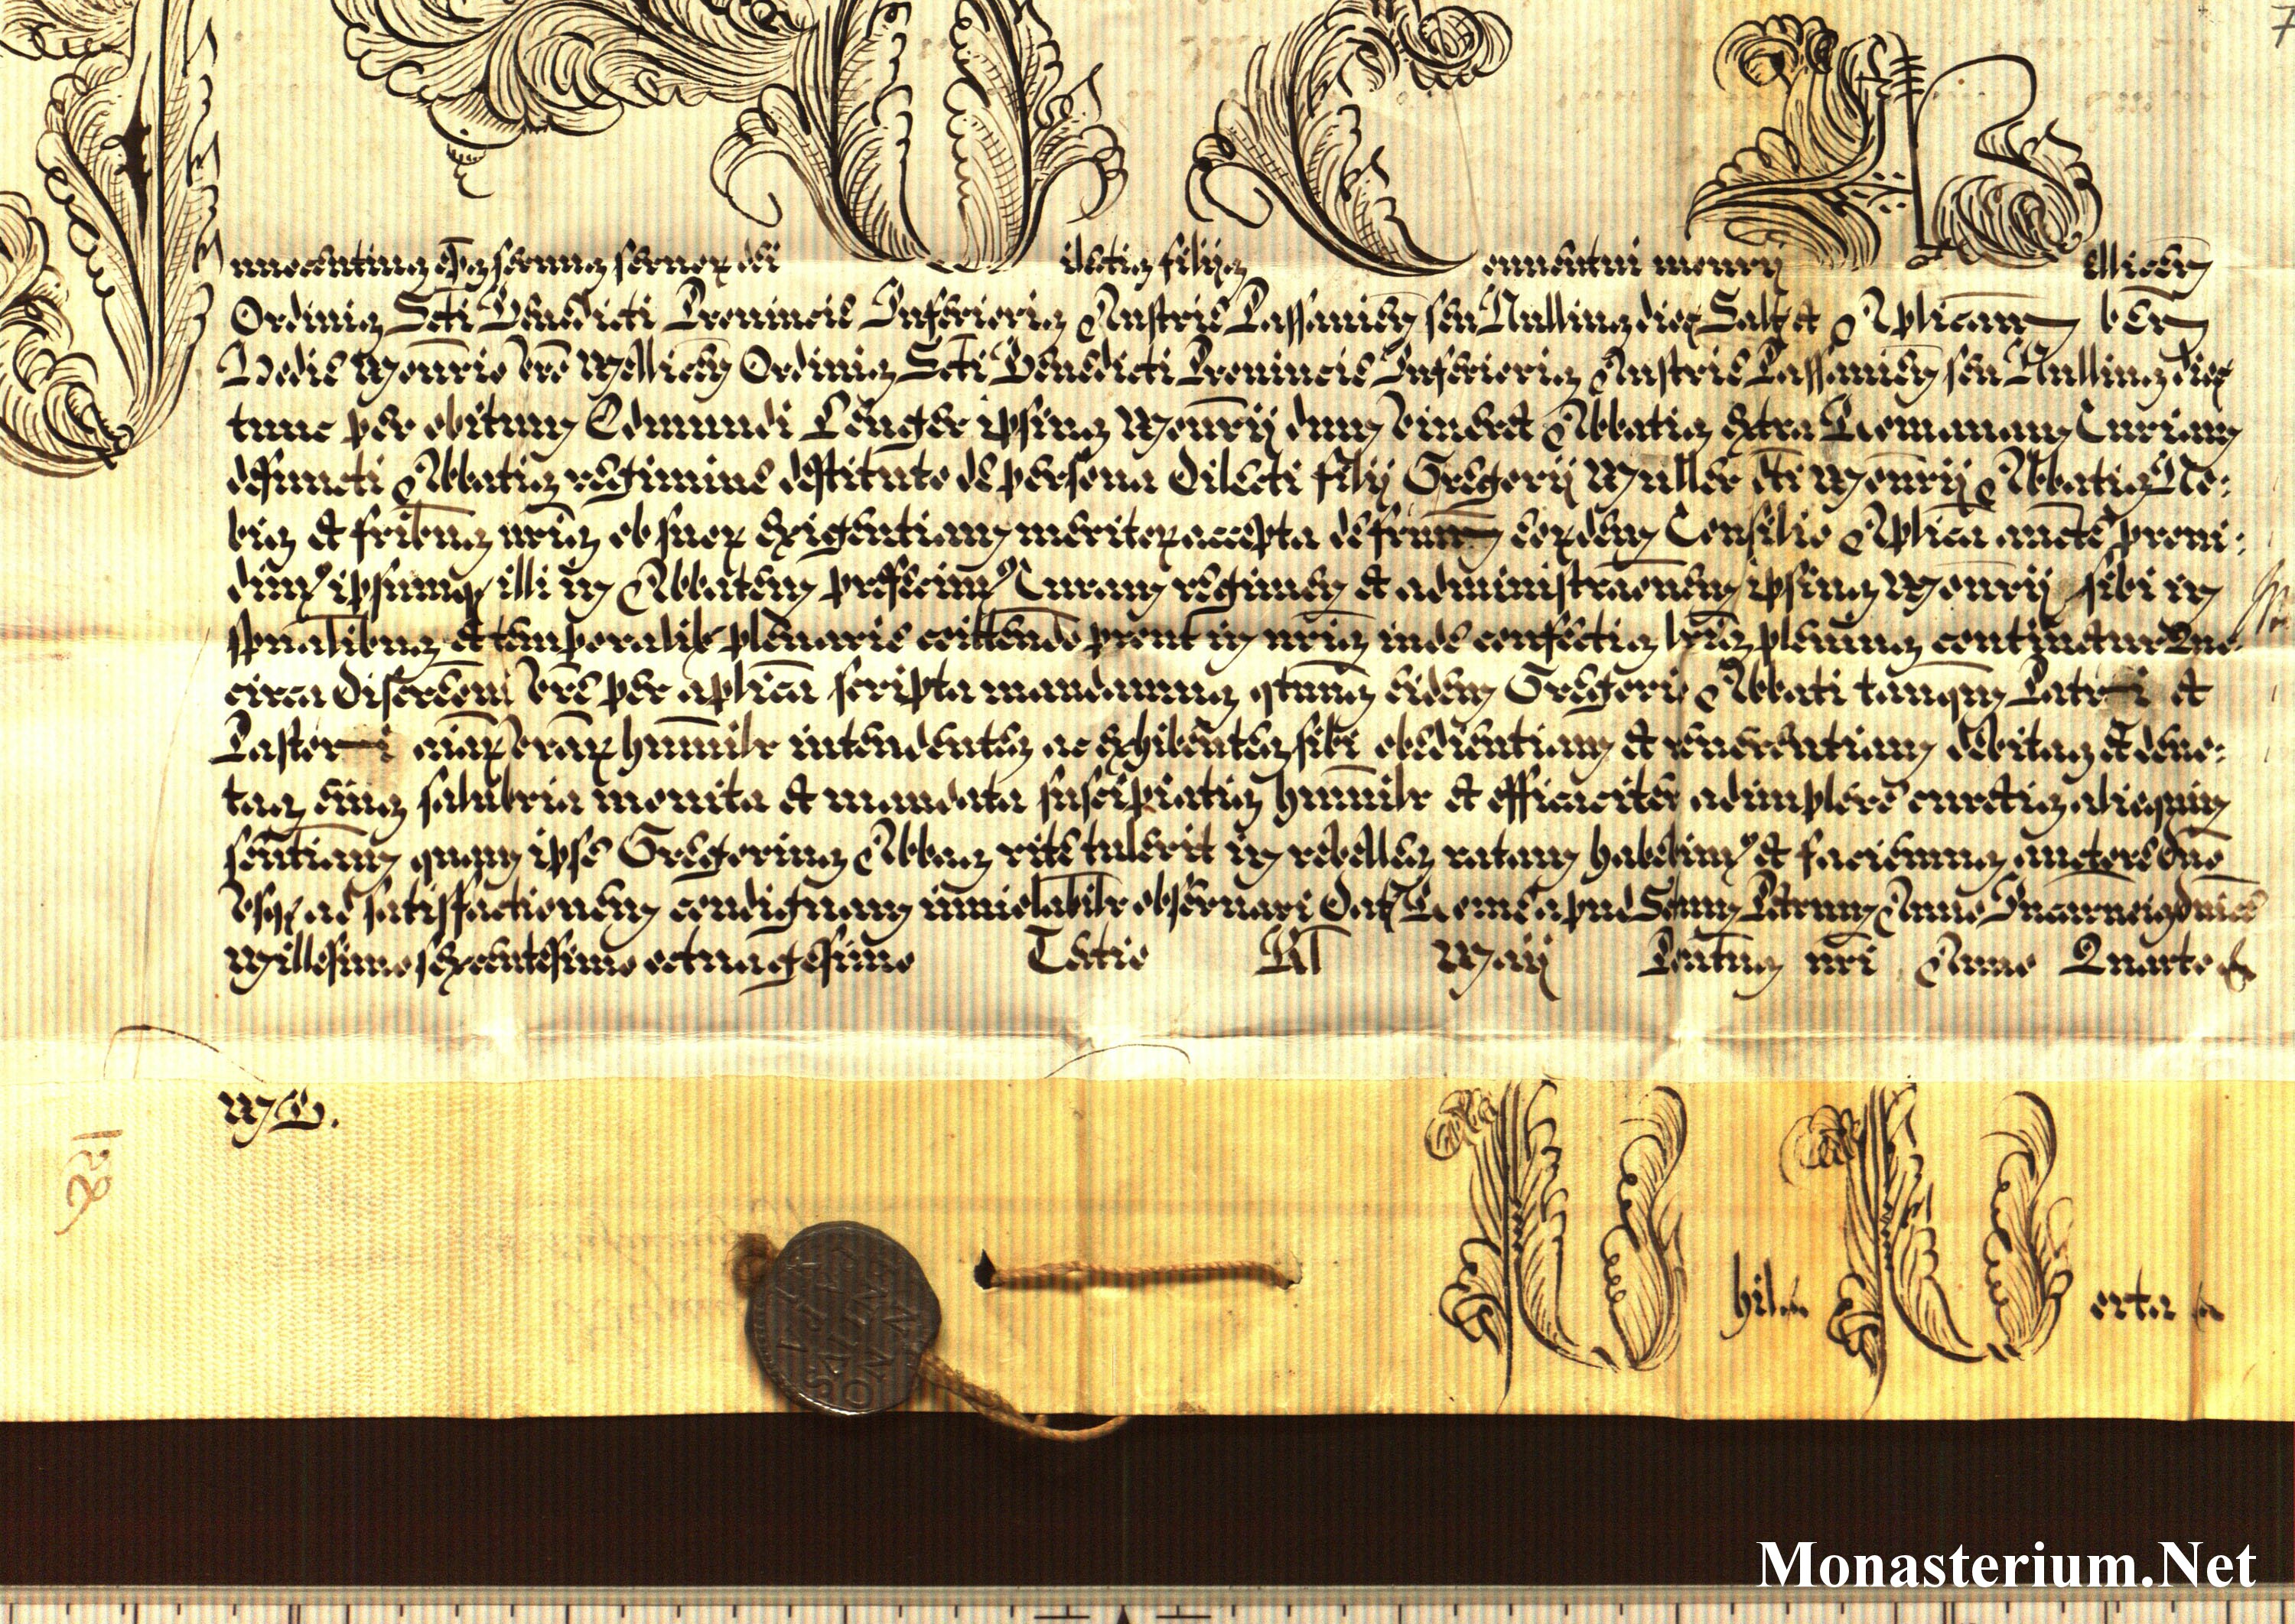 7
Innocentius Eps servus servor dei Dilectis filijs Conventui monrij Mellicen
Ordinis Scti Benedicti Provincie Inferioris Austrie Passavien seu Nullius dioc Salt et Aplicam ben
Hodie Monrio vro Mellicen Ordinis Scti Benedicti Provincie Inferioris Austrie Passavien seu Nullius dioc
tunc per obitum Edmundi ipsius Monrij dum viveret Abbatis extra Romanam Curiam
defuncti Abbatis regimine destituto de persona dilecti filij Gregorij Muller dti Monrij Abbatis No:
bis et fribus nris ob suor exigentiam meritor accepta de frum eordem Consilio Aplica aucte provi:
dimus ipsumq illi in Abbatem preficimus Curam regimen et administraonem ipsius Monrij sibi in
spualibus et temporalib plenarie comittendo prout in nris inde confectis lris plenius continetur Quo
circa discreoni vre per aplica scripta mandamus qtnus eidem Gregorio Abbati tanqm Patri et
Pastori aiar vrar humilr intendentes ac exhibentes sibi obedientiam et reverentiam debitas et devo:
tas eius salubria monita et mandata suscipiatis humilr et efficaciter adimplere curetis alioquin
sentiam quam ipse Gregorius Abbas rite tulerit in rebelles ratam habebimus et faciemus auctore dno
usq ad satisfactionem condignam inviolabilr observari Dat Rome apud Sctum Petrum Anno Incarnois dnice
Millesimo sexcentesimo octuagesimo Tertio Kl Maij Pontus nri Anno Quarto
M
INNO
CENTI
VS
Monasterium.Net